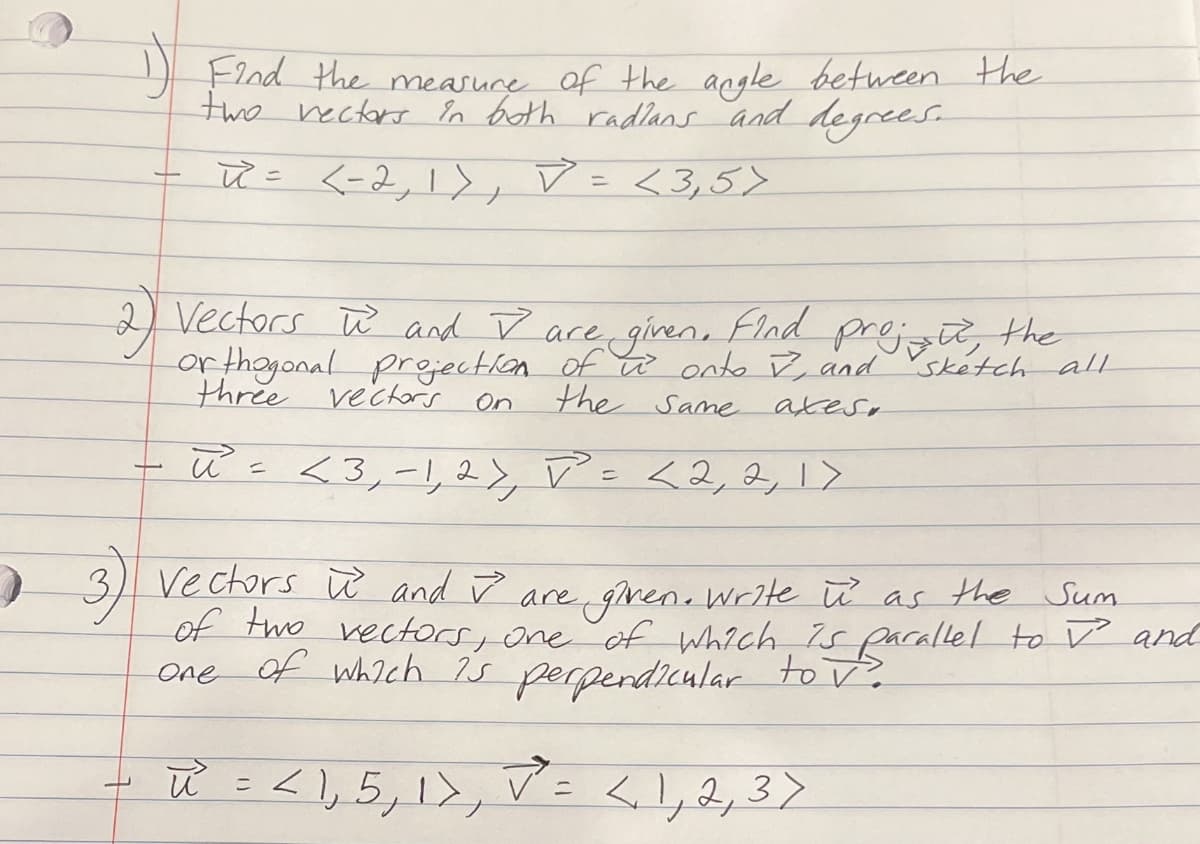 1) Find the measure of the angle between the
two vectors in both radians and degrees.
- u⃗ = <-2, 1>, v⃗ = <3,5>
2) Vectors u⃗ and v⃗ are given. Find proj_v⃗ u⃗, the
orthogonal projection of u⃗ onto v⃗, and sketch all
three vectors on the same axes.
- u⃗ = <3, -1, 2>, v⃗ = <2, 2, 1>
3) Vectors u⃗ and v⃗ are given. Write u⃗ as the sum
of two vectors, one of which is parallel to v⃗ and
one of which is perpendicular to v⃗.
- u⃗ = <1, 5, 1>, v⃗ = <1, 2, 3>